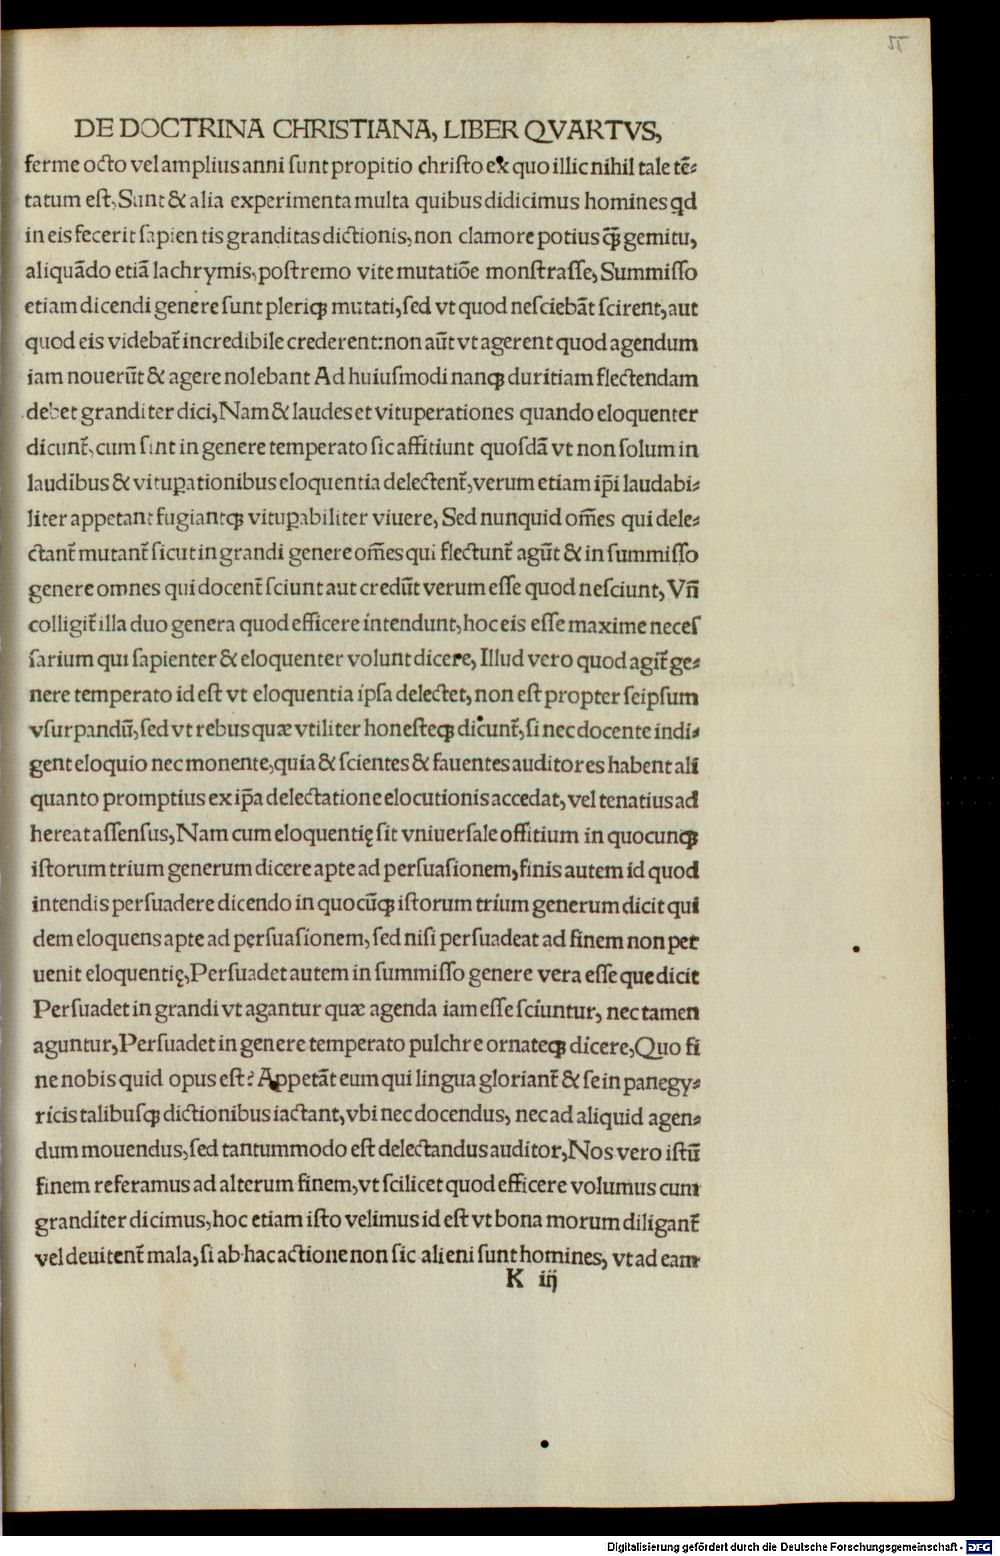 DE DOCTRINA CHRISTIANA, LIBER QVARTVS,
ferme octo vel amplius anni ſunt propitio chriſto ex quo illic nihil tale tē⸗
tatum eſt, Sunt & alia experimenta multa quibus didicimus homines qd
in eis fecerit ſapientis granditas dictionis, non clamore potius q̄ꝫ gemitu,
aliquādo etiā lachrymis, poſtremo vite mutatiōe monſtraſſe, Summiſſo
etiam dicendi genere ſunt pleriqꝫ mutati, ſed vt quod neſciebāt ſcirent, aut
quod eis videbat̄ incredibile crederent: non aūt vt agerent quod agendum
iam nouerūt & agere nolebant Ad huiuſmodi nanqꝫ duritiam flectendam
debet granditer dici, Nam & laudes et vituperationes quando eloquenter
dicunt̄, cum ſint in genere temperato ſic affitiunt quoſdā vt non ſolum in
laudibus & vituꝑationibus eloquentia delectent̄, verum etiam ip̄i laudabi⸗
liter appetant fugiantqꝫ vituꝑabiliter viuere, Sed nunquid om̄es qui dele⸗
ctant̄ mutant̄ ſicut in grandi genere om̄es qui flectunt̄ agūt & in ſummiſſo
genere omnes qui docent̄ ſciunt aut credūt verum eſſe quod neſciunt, Vn̄
colligit̄ illa duo genera quod efficere intendunt, hoc eis eſſe maxime neceſ
ſarium qui ſapienter & eloquenter volunt dicere, Illud vero quod agit̄ ge⸗
nere temperato id eſt vt eloquentia ipſa delectet, non eſt propter ſeipſum
vſurpandū, ſed vt rebus quæ vtiliter honeſteqꝫ dicunt̄, ſi nec docente indi⸗
gent eloquio nec monente, quia & ſcientes & fauentes auditores habent ali
quanto promptius ex ip̄a delectatione elocutionis accedat, vel tenatius ad
hereat aſſenſus, Nam cum eloquentię ſit vniuerſale offitium in quocunqꝫ
iſtorum trium generum dicere apte ad perſuaſionem, finis autem id quod
intendis perſuadere dicendo in quocūqꝫ iſtorum trium generum dicit qui
dem eloquens apte ad perſuaſionem, ſed niſi perſuadeat ad finem non per
uenit eloquentię, Perſuadet autem in ſummiſſo genere vera eſſe que dicit
Perſuadet in grandi vt agantur quæ agenda iam eſſe ſciuntur, nec tamen
aguntur, Perſuadet in genere temperato pulchre ornateqꝫ dicere, Quo fi
ne nobis quid opus eſt? Appetāt eum qui lingua gloriant̄ & ſe in panegy⸗
ricis talibuſqꝫ dictionibus iactant, vbi nec docendus, nec ad aliquid agen⸗
dum mouendus, ſed tantummodo eſt delectandus auditor, Nos vero iſtū
finem referamus ad alterum finem, vt ſcilicet quod efficere volumus cum
granditer dicimus, hoc etiam iſto velimus id eſt vt bona morum diligant̄
vel deuitent̄ mala, ſi ab hac actione non ſic alieni ſunt homines, vt ad eam
K iij
Digitalisierung gefördert durch die Deutsche Forschungsgemeinschaft - DFG